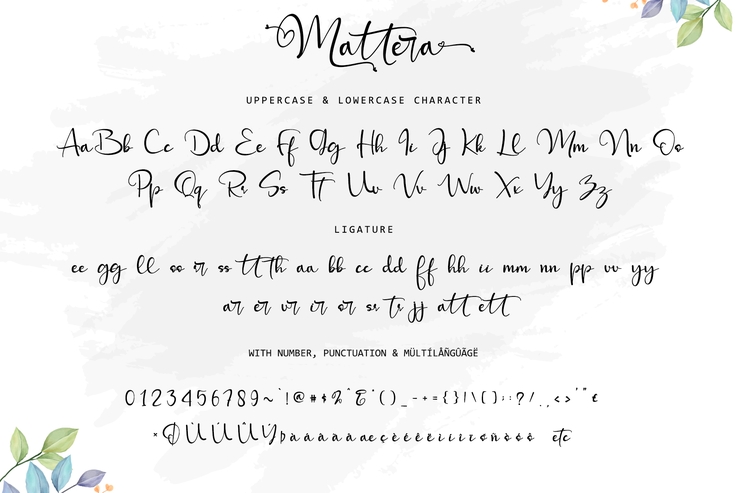 Mattera
UPPERCASE & LOWERCASE CHARACTER
Aa Bb Cc Dd Ee Ff Gg Hh Ii Jj Kk Ll Mm Nn Oo
Pp Qq Rr Ss Tt Uu Vv Ww Xx Yy Zz
LIGATURE
ee gg ll oo ir ss tt th aa bb cc dd ff hh ii mm nn pp vv yy
ar er ur ir or sr tr jj att ett
WITH NUMBER, PUNCTUATION & MÜLTÍLÅÑGÛÃGË
0123456789~`!@#$%^&*()_-+={}|\[]:;?/.,<>'"
etc